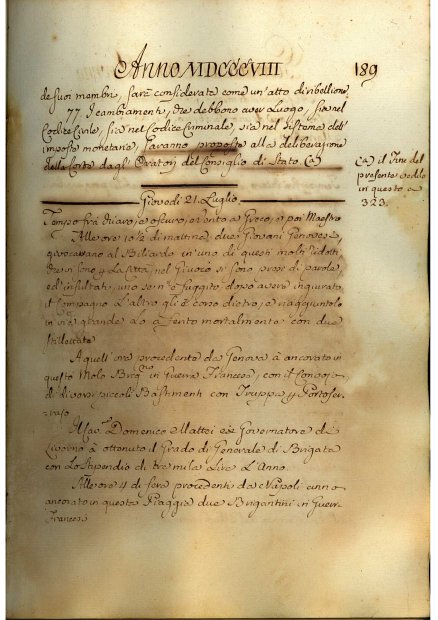 Anno MDCCCVIII 189
de suoi membri, sarà considerata come un'atto di ribellione,
77. I cambiamenti, che debbono aver Luogo, sia nel
Codice Civile, sia nel Codice Criminale, sia nel Sistema dell'
imposte monetarie, saranno proposte alla deliberazione
della Corte dagl'Oratori del Consiglio di Stato (A)
(A) il fine del
presente vedilo
in questo a
323.
Giovedì 21. Luglio.
Tempo frà chiaro, e oscuro, e Vento a Greco, e poi Maestro
Alle ore di mattina, due Giovani Genovesi,
giuocavano al Biliardo in uno di questi molti ridotti,
che vi sono y La Città, nel Giuoco si sono presi di parole,
ed'insultati, uno se n'è fuggito dopo avere ingiuriato
il Compagno L'altro gli è corso dietro, e raggiuntolo
in via grande Lo à ferito mortalmente con due
stillettate
A quell'ora procedente da Genova à ancorato in
questo Molo Brig.no in Guerra Francese, con il Convojo
di diversi piccoli Bastimenti con Truppa y Portofer-
rajo.
Il Cav. Domenico Mattei ex Governatore di
Livorno à ottenuto il Grado di Generale di Brigata
con Lo Stipendio di tremila Lire L'Anno.
Alle ore 11 di sera procedenti da Napoli anno
ancorato in questa Piaggia due Brigantini in Guerra
Francesi